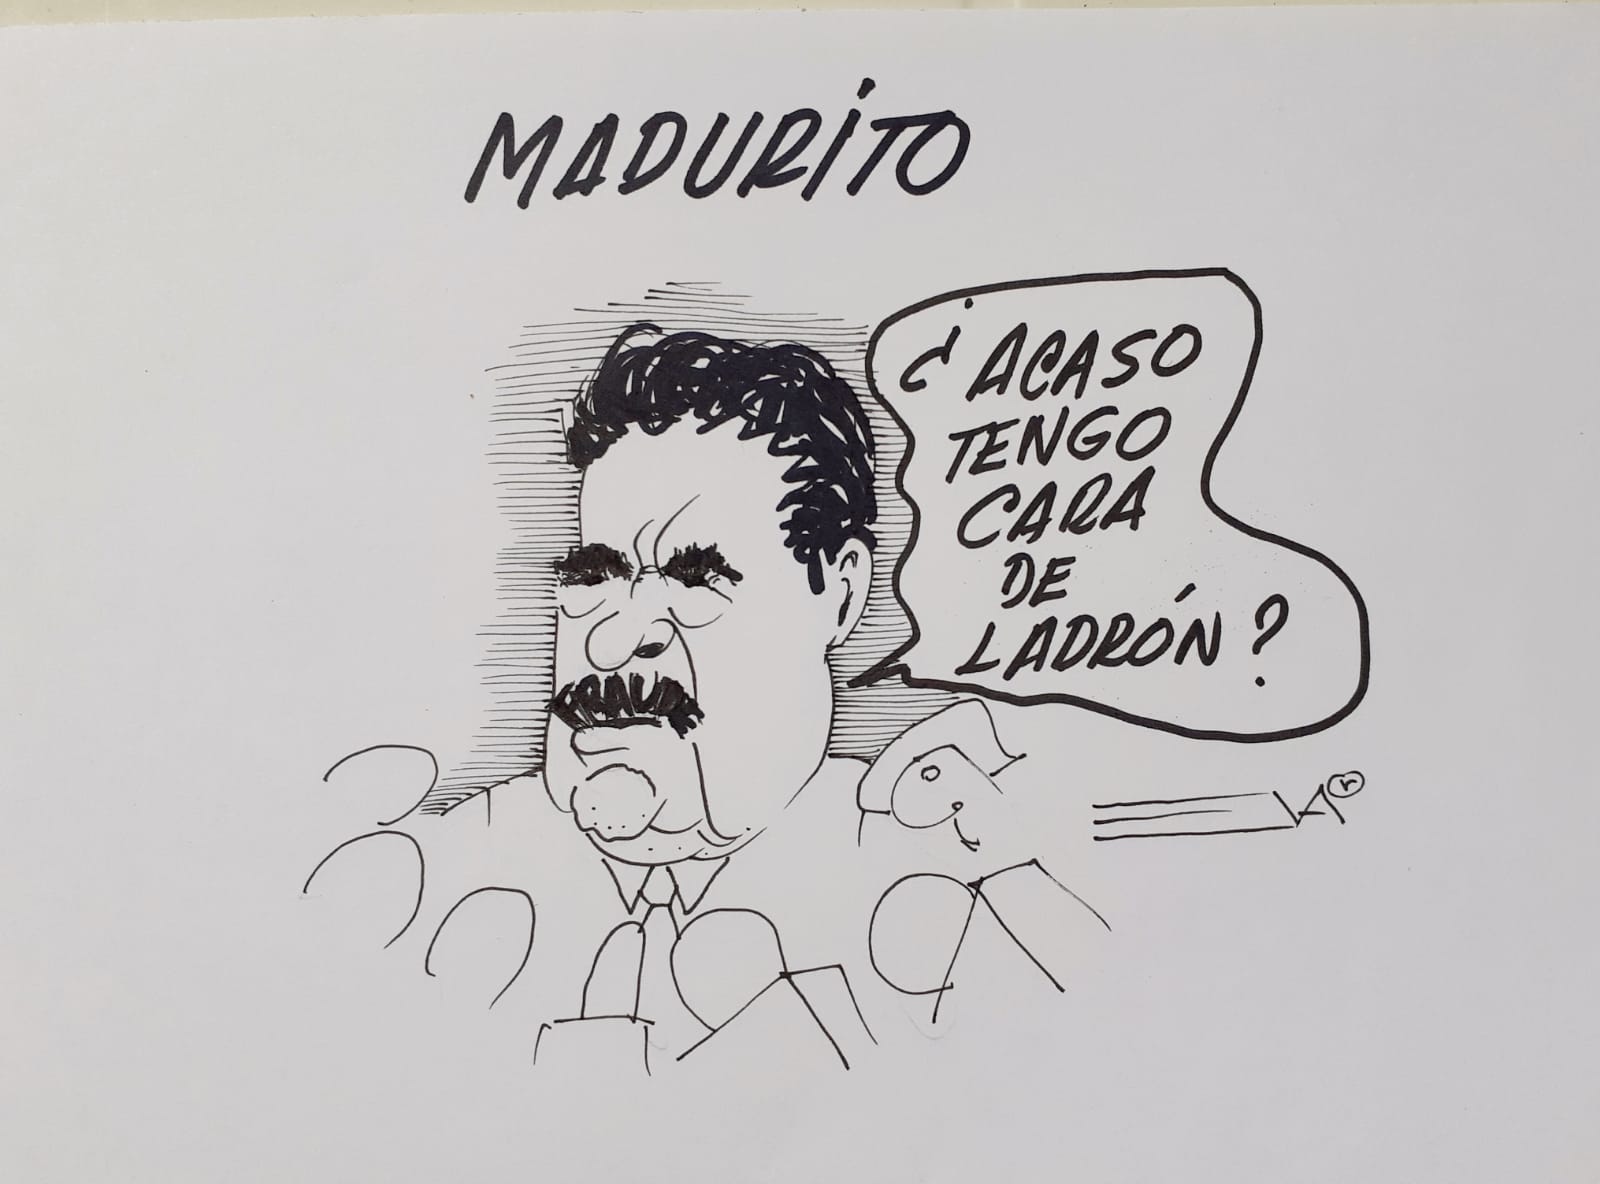 MADURITO
¿ACASO
TENGO
CARA
DE
LADRÓN?
FRAUDE